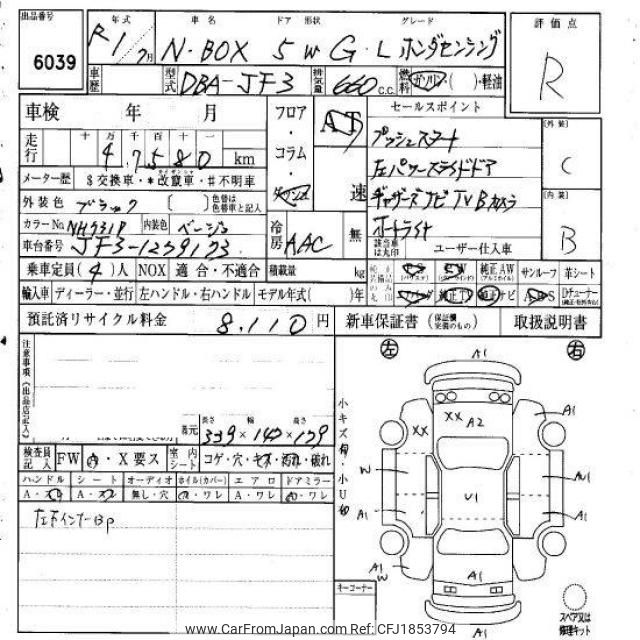 出品番号 年式 車名 ドア 形状 グレード 評価点
6039 R1/7月 N-BOX 5W G・L ホンダセンシング R
車歴 型式 DBA-JF3 排気量 660 C.C. 燃料 ガソリン・( )・軽油
車検 年 月 フロア・コラム・ AT 速 セールスポイント
走行 十万千百十一 4,7580 km プッシュスタート [外装] C
メーター歴 $交換車・*改竄車・#不明車 左パワースライドドア
外装色 ブラック [ ] 色替は色替車と記入 ギャザズナビTVBカメラ [内装] B
カラーNo. NH731P 内装色 ベージュ 冷房 AAC 無 オートライト
車台番号 JF3-1259123 該当車は丸印 ユーザー仕入車
乗車定員(4)人 NOX 適合・不適合 積載量 kg 純正AW サンルーフ 革シート
輸入車 ディーラー・並行 左ハンドル・右ハンドル モデル年式( )年 純正TV 純正ナビ ABS
預託済リサイクル料金 8,110円 新車保証書(保証欄完備のもの) 取扱説明書
注意事項《出品店記入》 左 右
小キズ有・小U有
長さ 幅 高さ
339×147×179
検査員記入 FW A・X要ス 室内シート コゲ・穴・キズ・汚れ・破れ
ハンドル シート オーディオ ホイル(カバー) エアロ ドアミラー
無し・穴 A・ワレ
左下インナーBP
A1
XX A2 XX A1
W A1 U1 A1
A1 W A1 A1
A1
キーコーナー
スペア又は修理キット
www.CarFromJapan.com Ref: CFJ1853794